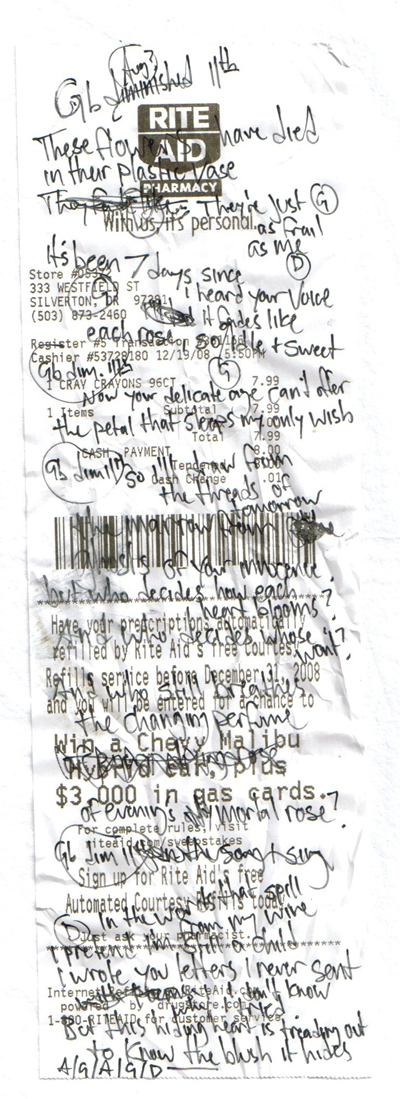 Aug?
Gb diminished 11th
RITE
AID
PHARMACY
These flowers have died
in their plastic vase
They're just G
With us, it's personal.
as frail
as me
D
It's been 7 days since
Store #05
333 WESTFIELD ST
SILVERTON, OR 97381
(503) 873-2460
i heard your voice
it fades like
each rose so little + sweet
Register #5 Transaction
Cashier #53728180 12/19/08 5:50PM
Gb dim. 11th
G
1 CRAY CRAYONS 96CT 7.99
Now your delicate age can't offer
1 Items Subtotal 7.99
the petal that sleeps my only wish
Total 7.99
CASH PAYMENT 8.00
Gb dim 11th so I'll draw from
Tendered
Cash Change .01
the threads of
tomorrow
the
ghosts of your innocence.
but who decides how each
heart blooms?
Have your prescriptions automatically
And who decides whose
refilled by Rite Aid's free Courtesy
won't?
Refills service before December 31, 2008
And who still breathes
and you will be entered for a chance to
the changing perfume
Win a Chevy Malibu
Hybrid car, plus
$3,000 in gas cards.
of evening's my mortal rose?
For complete rules, visit
riteaid.com/sweepstakes
Gb dim 11 in the song i sing
Sign up for Rite Aid's free
in the words that spill
Automated Courtesy Refills today
D from my wine
Just ask your pharmacist.
i pretend i'm still a child
i wrote you letters I never sent
Internet RiteAid.com
don't know
powered by drugstore.com
1-800-RITEAID for customer service
But this hiding heart is treading out
to know the blush it hides
A/G/A/G/D